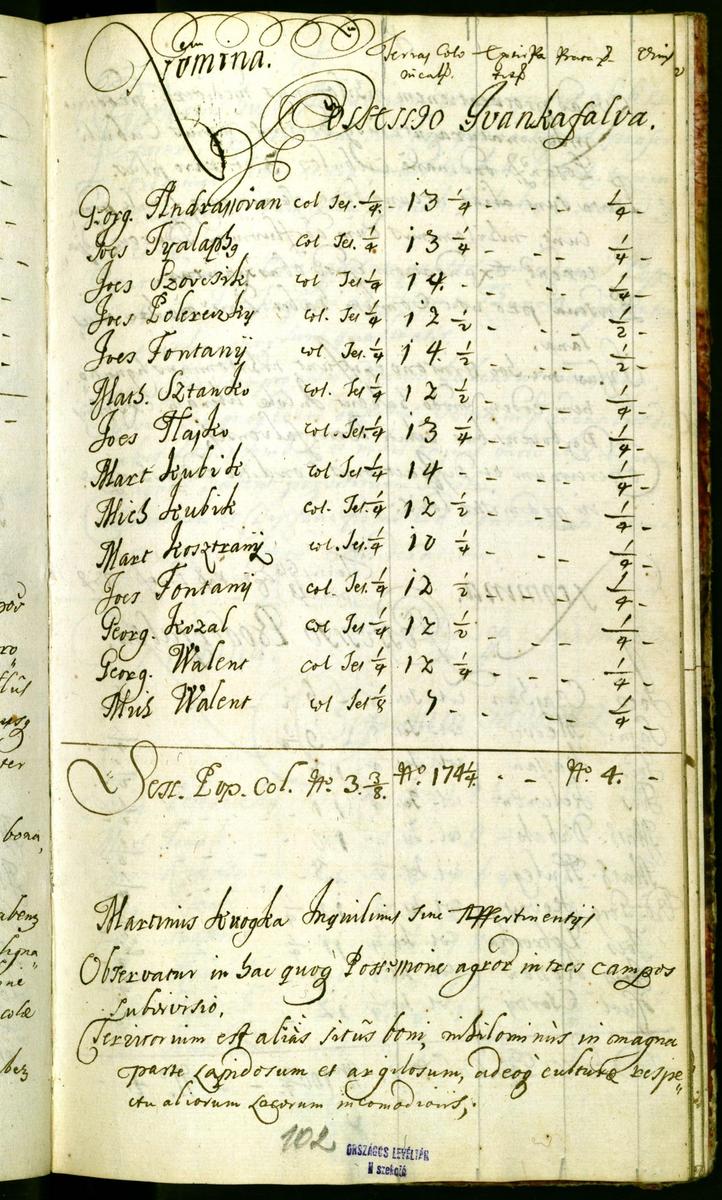 Nomina.
Possessio Ivankafalva.
Georg. Andrassovan col Ses. 1/4 - 13 1/4 - - - 1/4 -
Joes col Ses. 1/4 13 1/4 - - - 1/4 -
Joes Szovcsik col Ses 1/4 14. - - - 1/4 -
Joes col. Ses 1/4 12 1/2 - - - 1/2 -
Joes Fontanÿ col. Ses. 1/4 14. 1/2 - - - 1/2 -
Math. Sztanko col. Ses 1/4 12 1/2 - - - 1/4 -
Joes Hajko col. Ses 1/4 13 1/4 - - - 1/4 -
Mart Kubik col Ses 1/4 14 - - - - 1/4 -
Mich Kubik col. Ses. 1/4 12 1/2 - - - 1/4 -
Mart col. Ses. 1/4 10 1/4 - - - 1/4 -
Joes Fontanÿ col. Ses 1/4 12 1/2 - - - 1/4 -
Georg. Kozal col Ses 1/4 12 1/2 - - - 1/4 -
Georg. Walent col Ses 1/4 12 1/4 - - - 1/4 -
Mich Walent col Ses 1/8 7 - - - - 1/4 -
Sess. Pop. Col. No. 3. 3/8. No. 174 1/4. - - No. 4. -
Martinus Inquilinus sine Appertinentÿs
Observatur in hac quoq Possessione agror in tres campos
subdivisio,
Territorium est aliàs sitûs boni, nihilominùs in magna
parte lapidosum et argilosum, adeoq culturæ respe"
ctu aliorum Locorum incomodioris,
102
ORSZÁGOS LEVÉLTÁR
II szekció